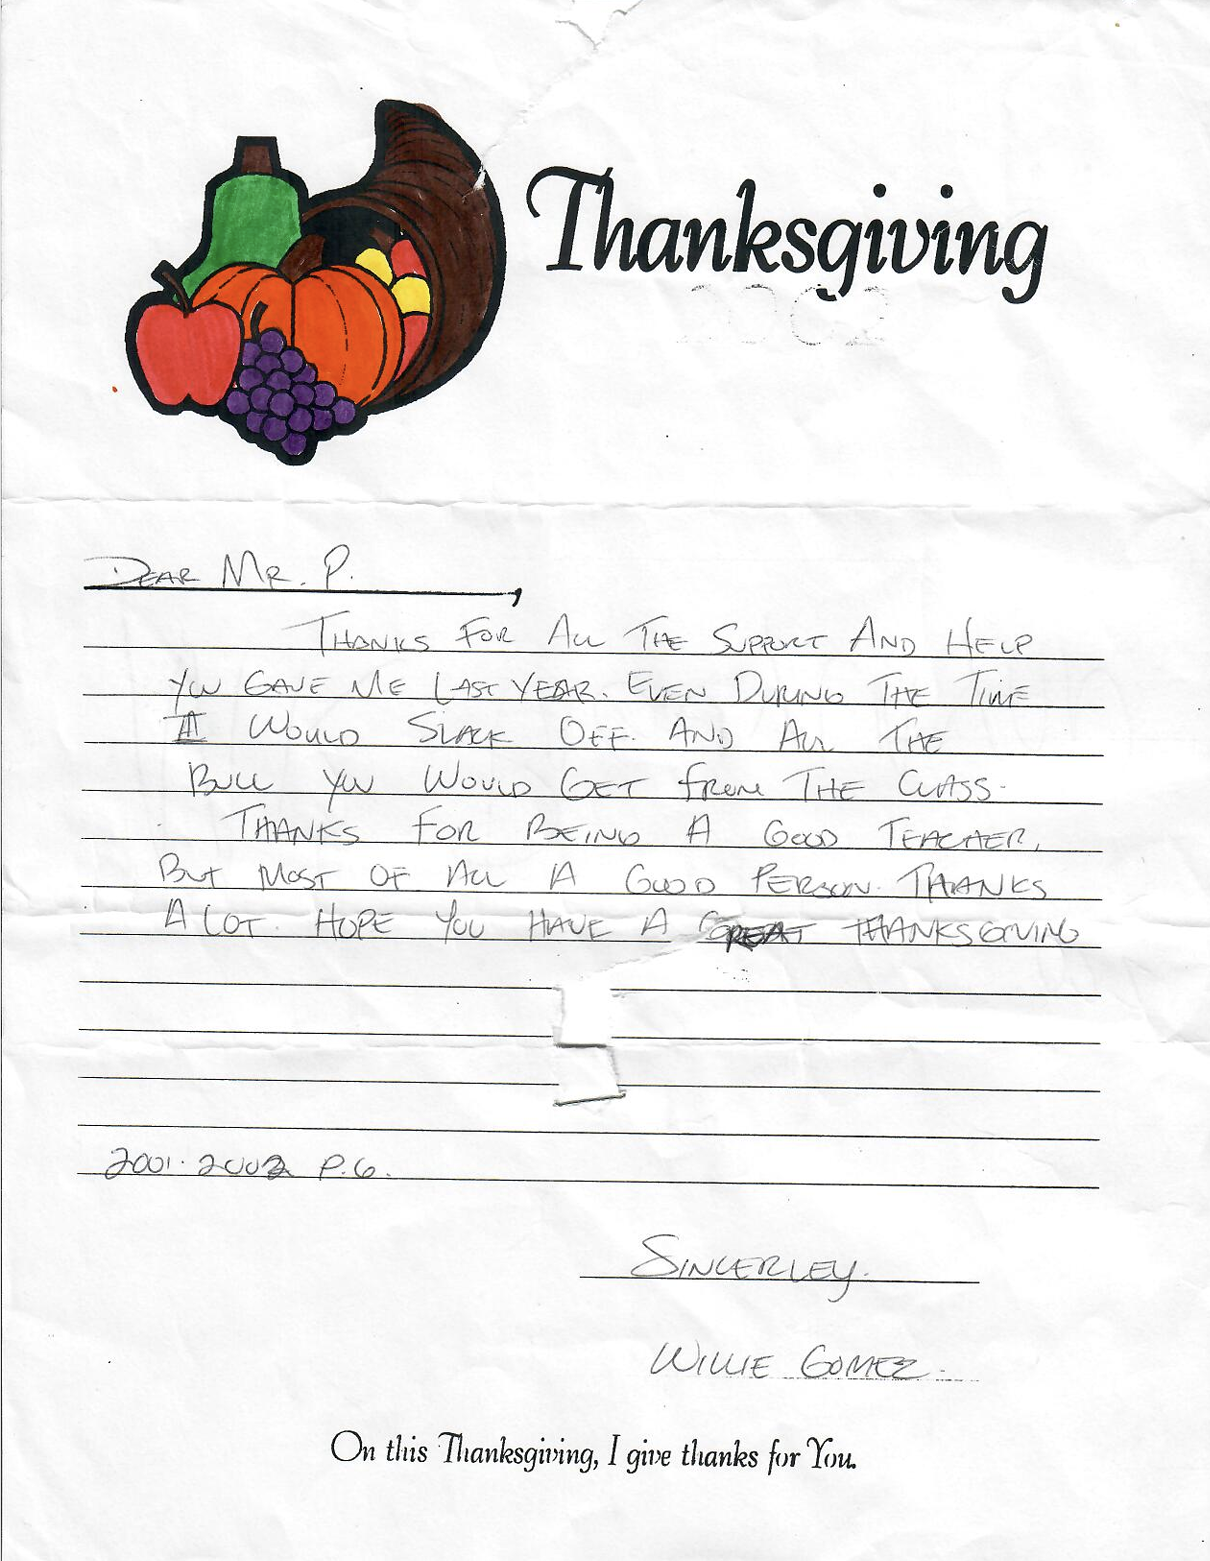 Thanksgiving
2002
DEAR MR. P.,
THANKS FOR ALL THE SUPPORT AND HELP
YOU GAVE ME LAST YEAR. EVEN DURING THE TIME
I WOULD SLACK OFF. AND ALL THE
BULL YOU WOULD GET from THE CLASS.
THANKS FOR BEING A GOOD TEACHER,
BUT MOST OF ALL A GOOD PERSON. THANKS
A LOT. HOPE YOU HAVE A GREAT THANKSGIVING
2001-2002 P.6.
SINCERLEY.
WILLIE GOMEZ.
On this Thanksgiving, I give thanks for You.